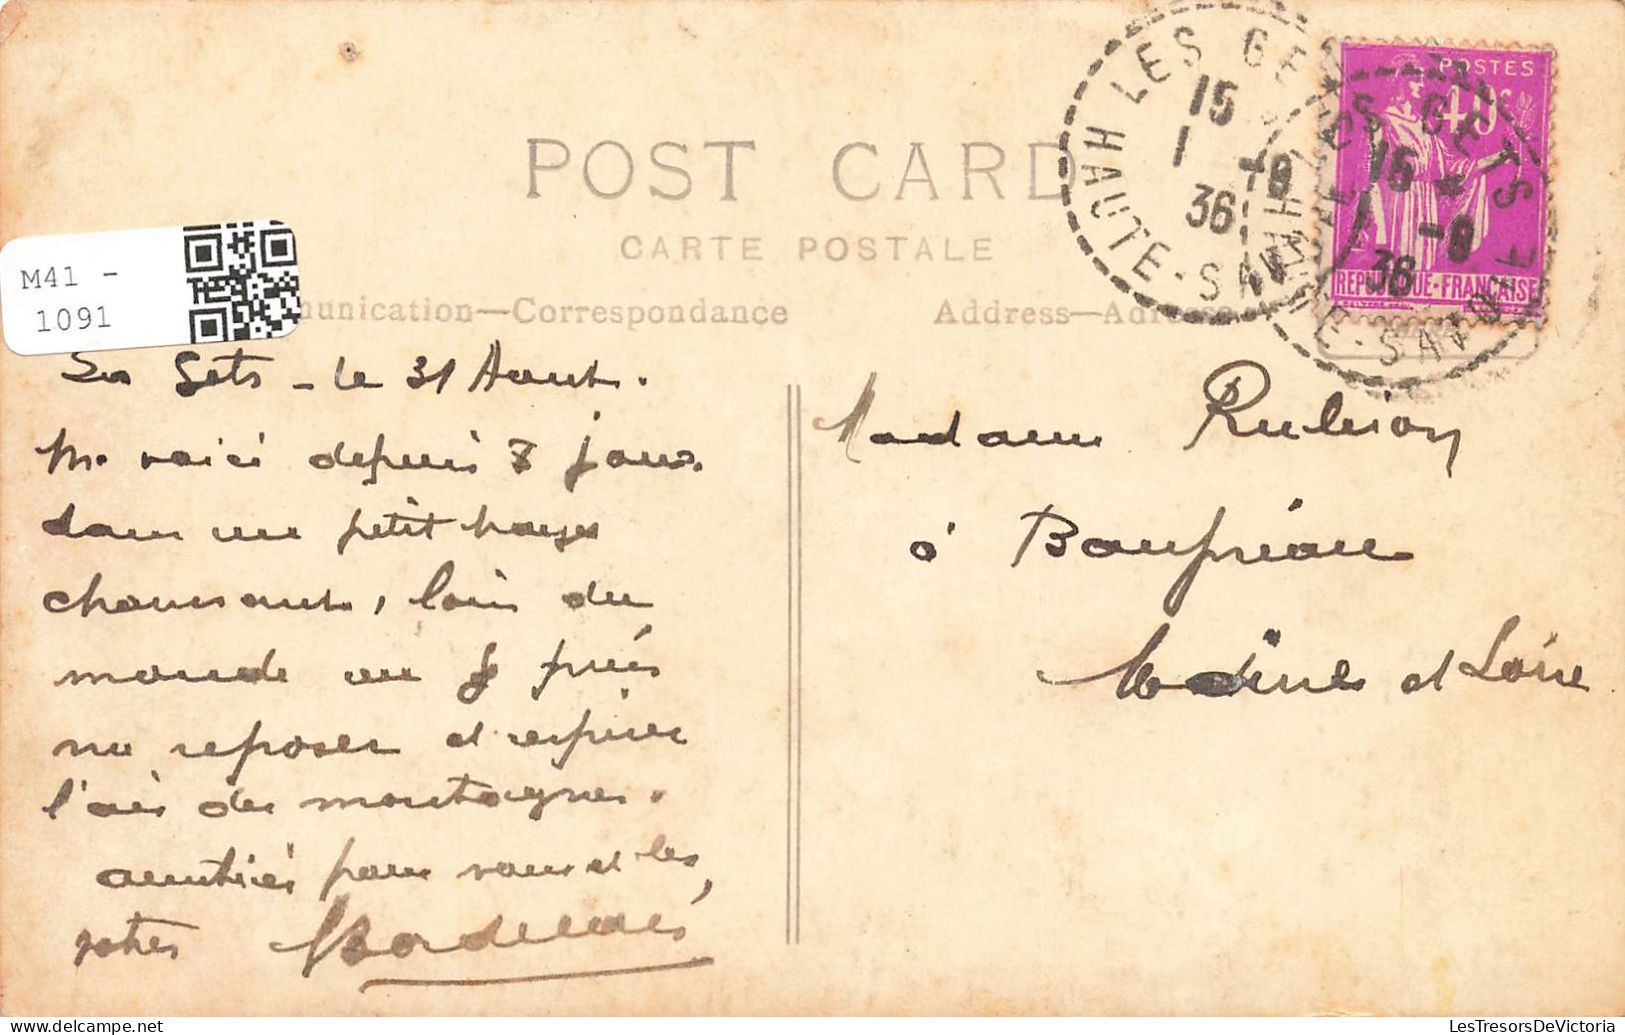 POST CARD
CARTE POSTALE
M41 -
1091
munication—Correspondance
Address—Adresse
LES GETS
HAUTE-SAVOIE
15
1 -9
36
LES GETS
HAUTE-SAVOIE
15
1 -9
36
POSTES
40c
REPUBLIQUE-FRANÇAISE
Les Gets - le 31 Aout.
Me voici depuis 8 jours
dans un petit pays
charmant, loin du
monde où je puis
me reposer et respirer
l'air des montagnes.
amitiés pour vous et les
votres
Madame
à Beaupréau
Maine et Loire
LesTresorsDeVictoria